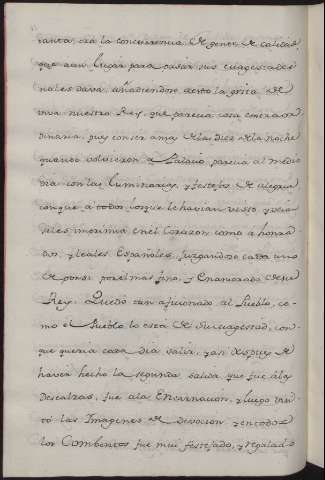 tanta, era la concurrencia de gente de calidad
que aun lugar para pasar sus magestades
no les dava, añadiendose a esto la grita de
viva nuestro Rey, que parecia cosa extraor
dinaria, pues con ser a mas de las diez de la noche
quando volvieron a Palacio, parecia al medio
dia con las luminarias, y festejos de alegria
con que a todos los que le havian visto, y veian
se les imprimia en el Corazon como a honra
dos, y leales Españoles, juzgandose cada uno
de por si por el mas fino, y Enamorado de su
Rey. Quedo tan aficionado al Pueblo, co-
mo el Pueblo lo esta de su magestad, con
que queria cada dia salir, y asi despues de
haver hecho la segunda salida que fue a las
Descalzas, fue a la Encarnacion, y luego visi
tó las Imagenes de devocion, y en todos
los Combentos fue mui festejado, y regalado